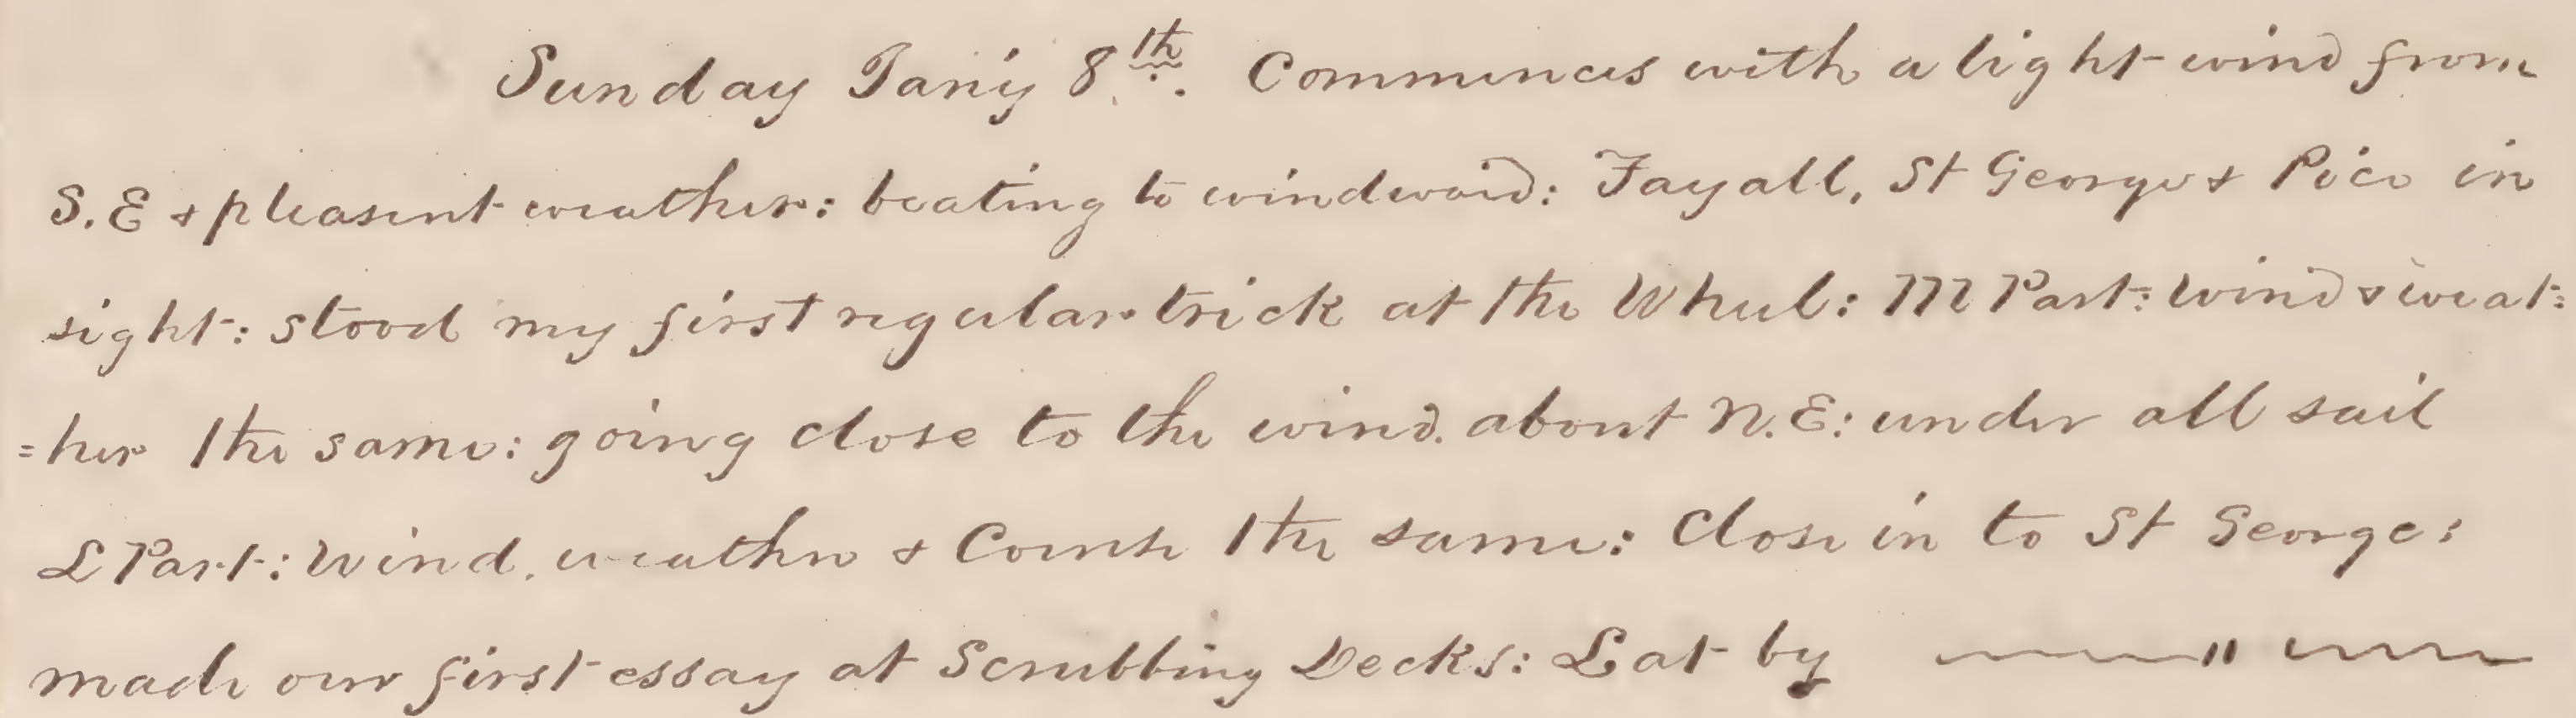 Sunday Jan'y 8th. Commences with a light wind from
S.E & pleasent weather: beating to windward: Fayall, St George & Pico in
sight: stood my first regular trick at the Wheel: M Part: Wind & weat=
=her the same: going close to the wind. about N.E: under all sail
L Part: Wind, weather & Course the same: Close in to St George:
made our first essay at Scrubbing Decks: Lat by ——— " ———